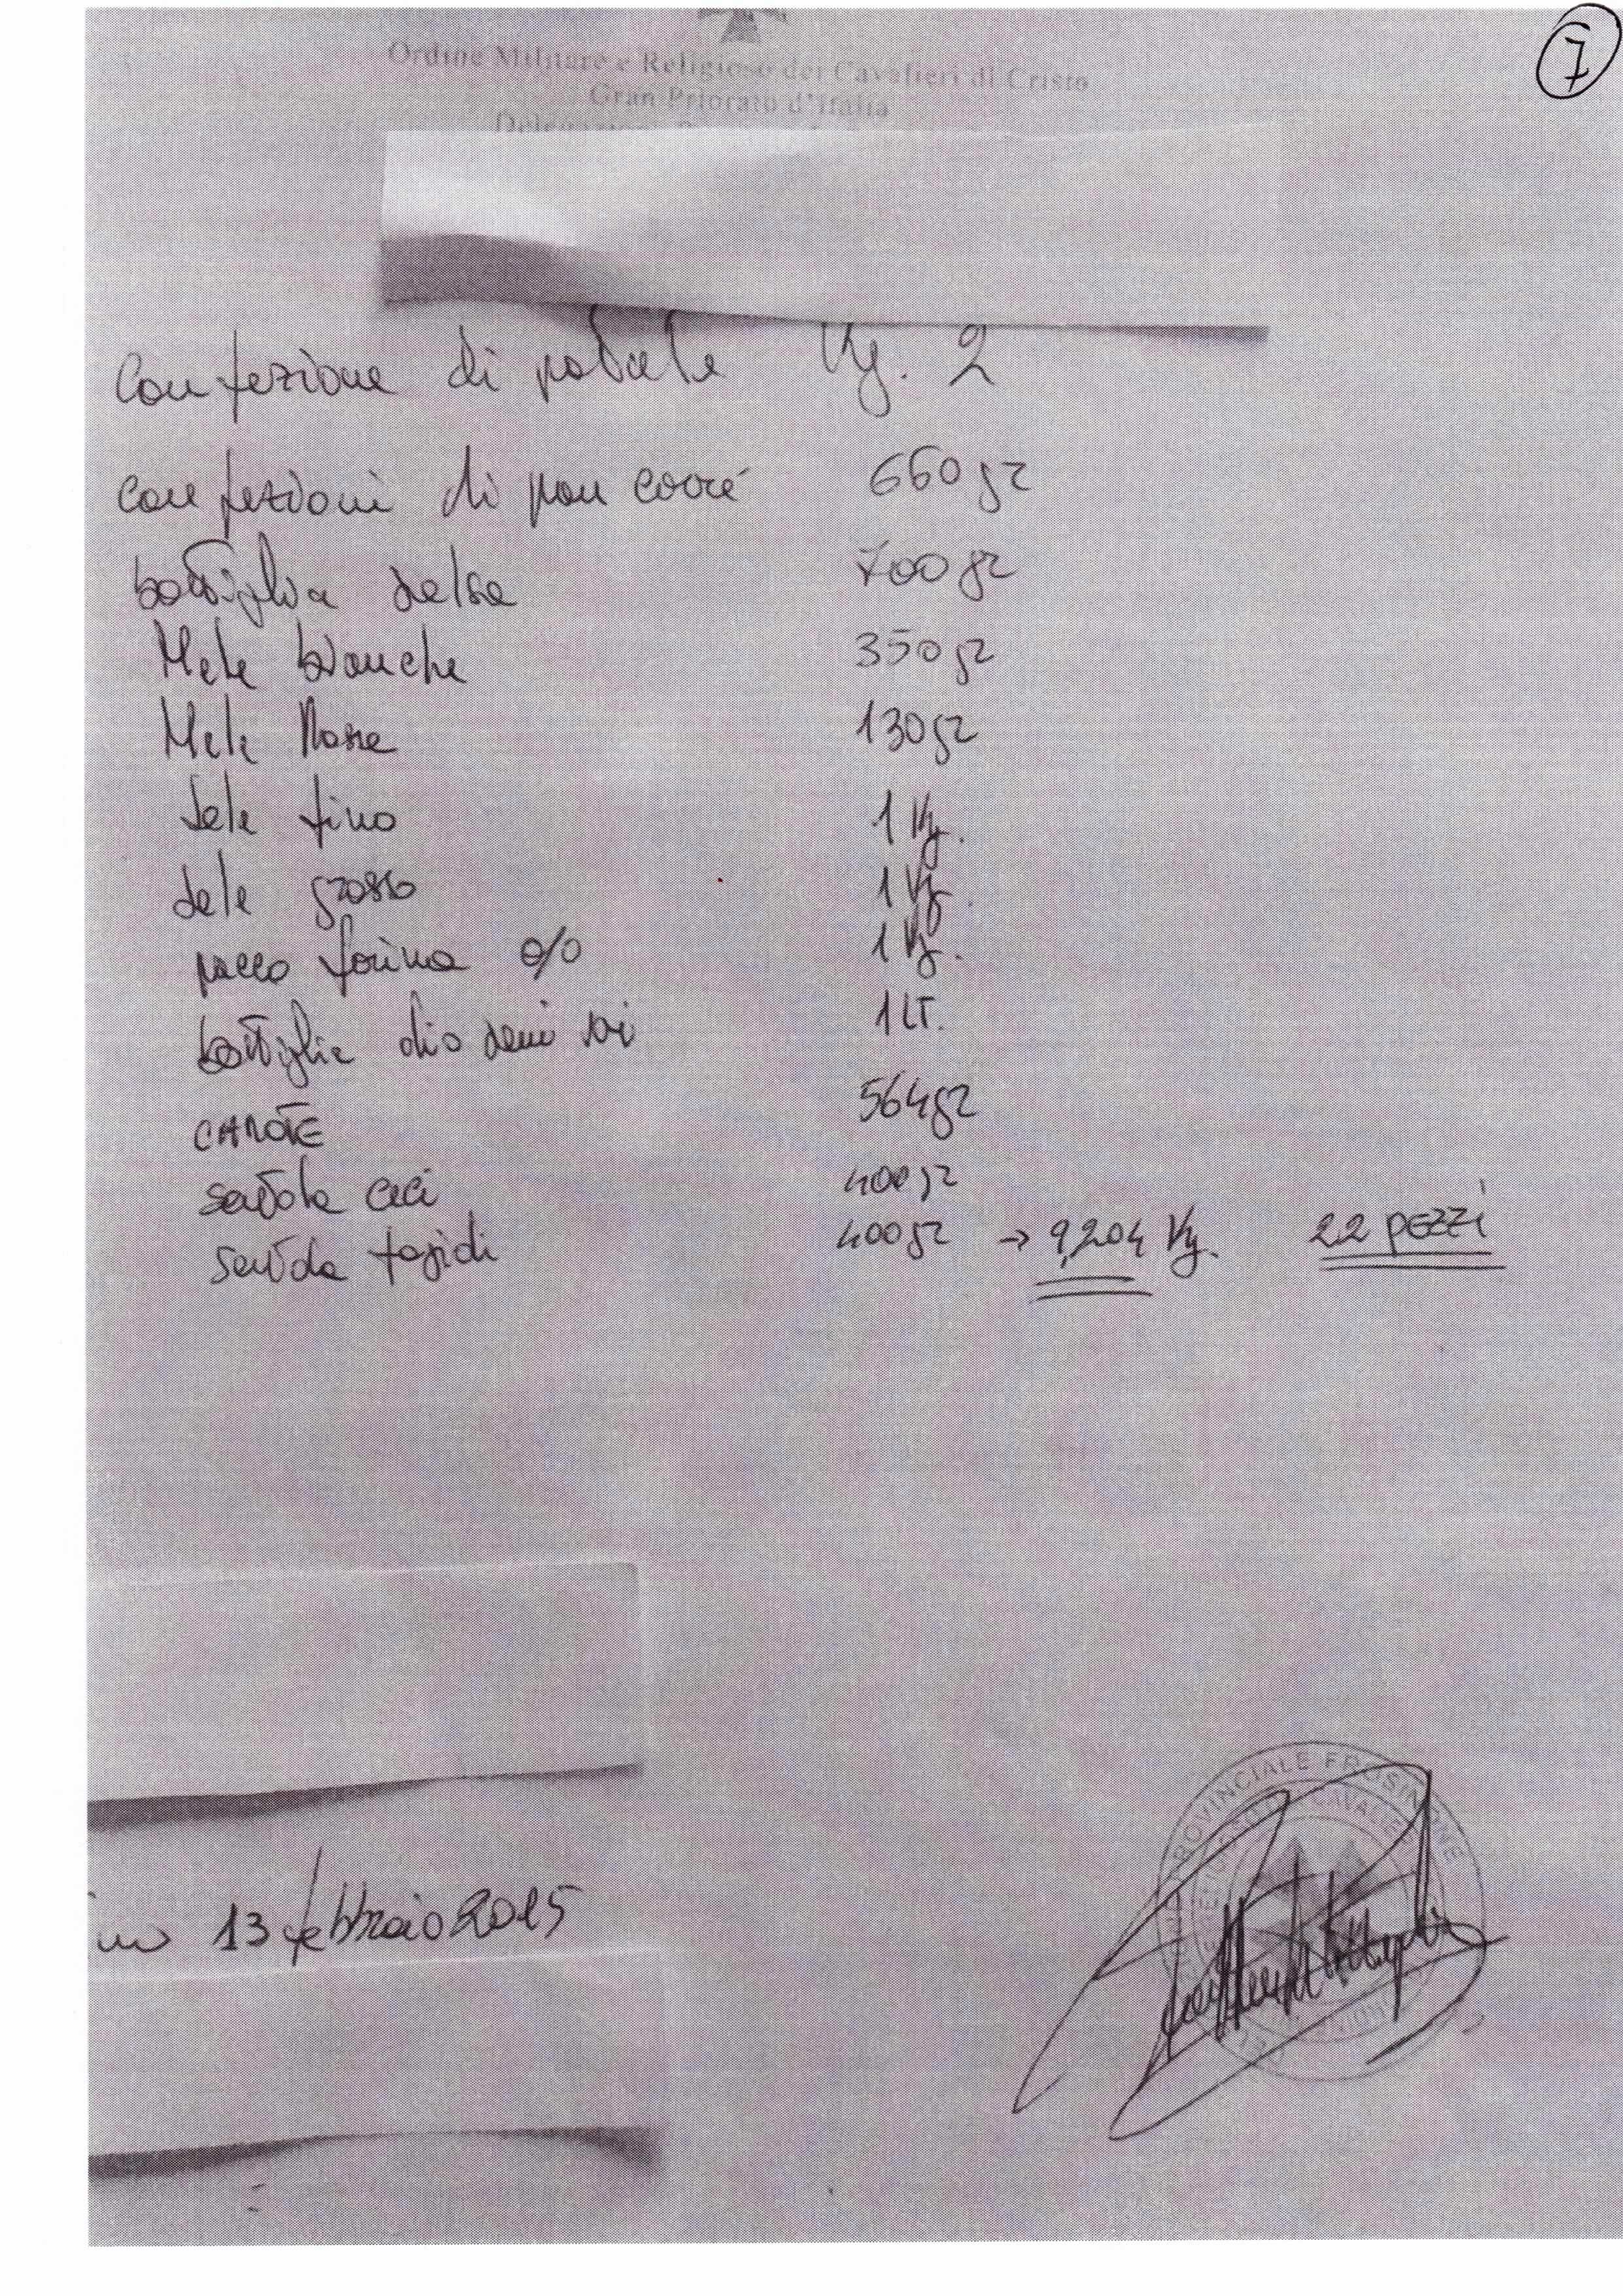 7
Ordine Militare e Religioso dei Cavalieri di Cristo
Gran Priorato d'Italia
Confezione di patate Kg. 2
confezioni di pan carré 660 gr
bottiglia salsa 700 gr
Mele bianche 350 gr
Mele Rosse 130 gr
sale fino 1 Kg.
sale grosso 1 Kg.
pacco farina 0/0 1 Kg.
bottiglia olio semi vari 1 LT.
CAROTE 564 gr
scatola ceci 400 gr
scatola fagioli 400 gr → 9,204 Kg. 22 PEZZI
13 febbraio 2015
PROVINCIALE FROSINONE